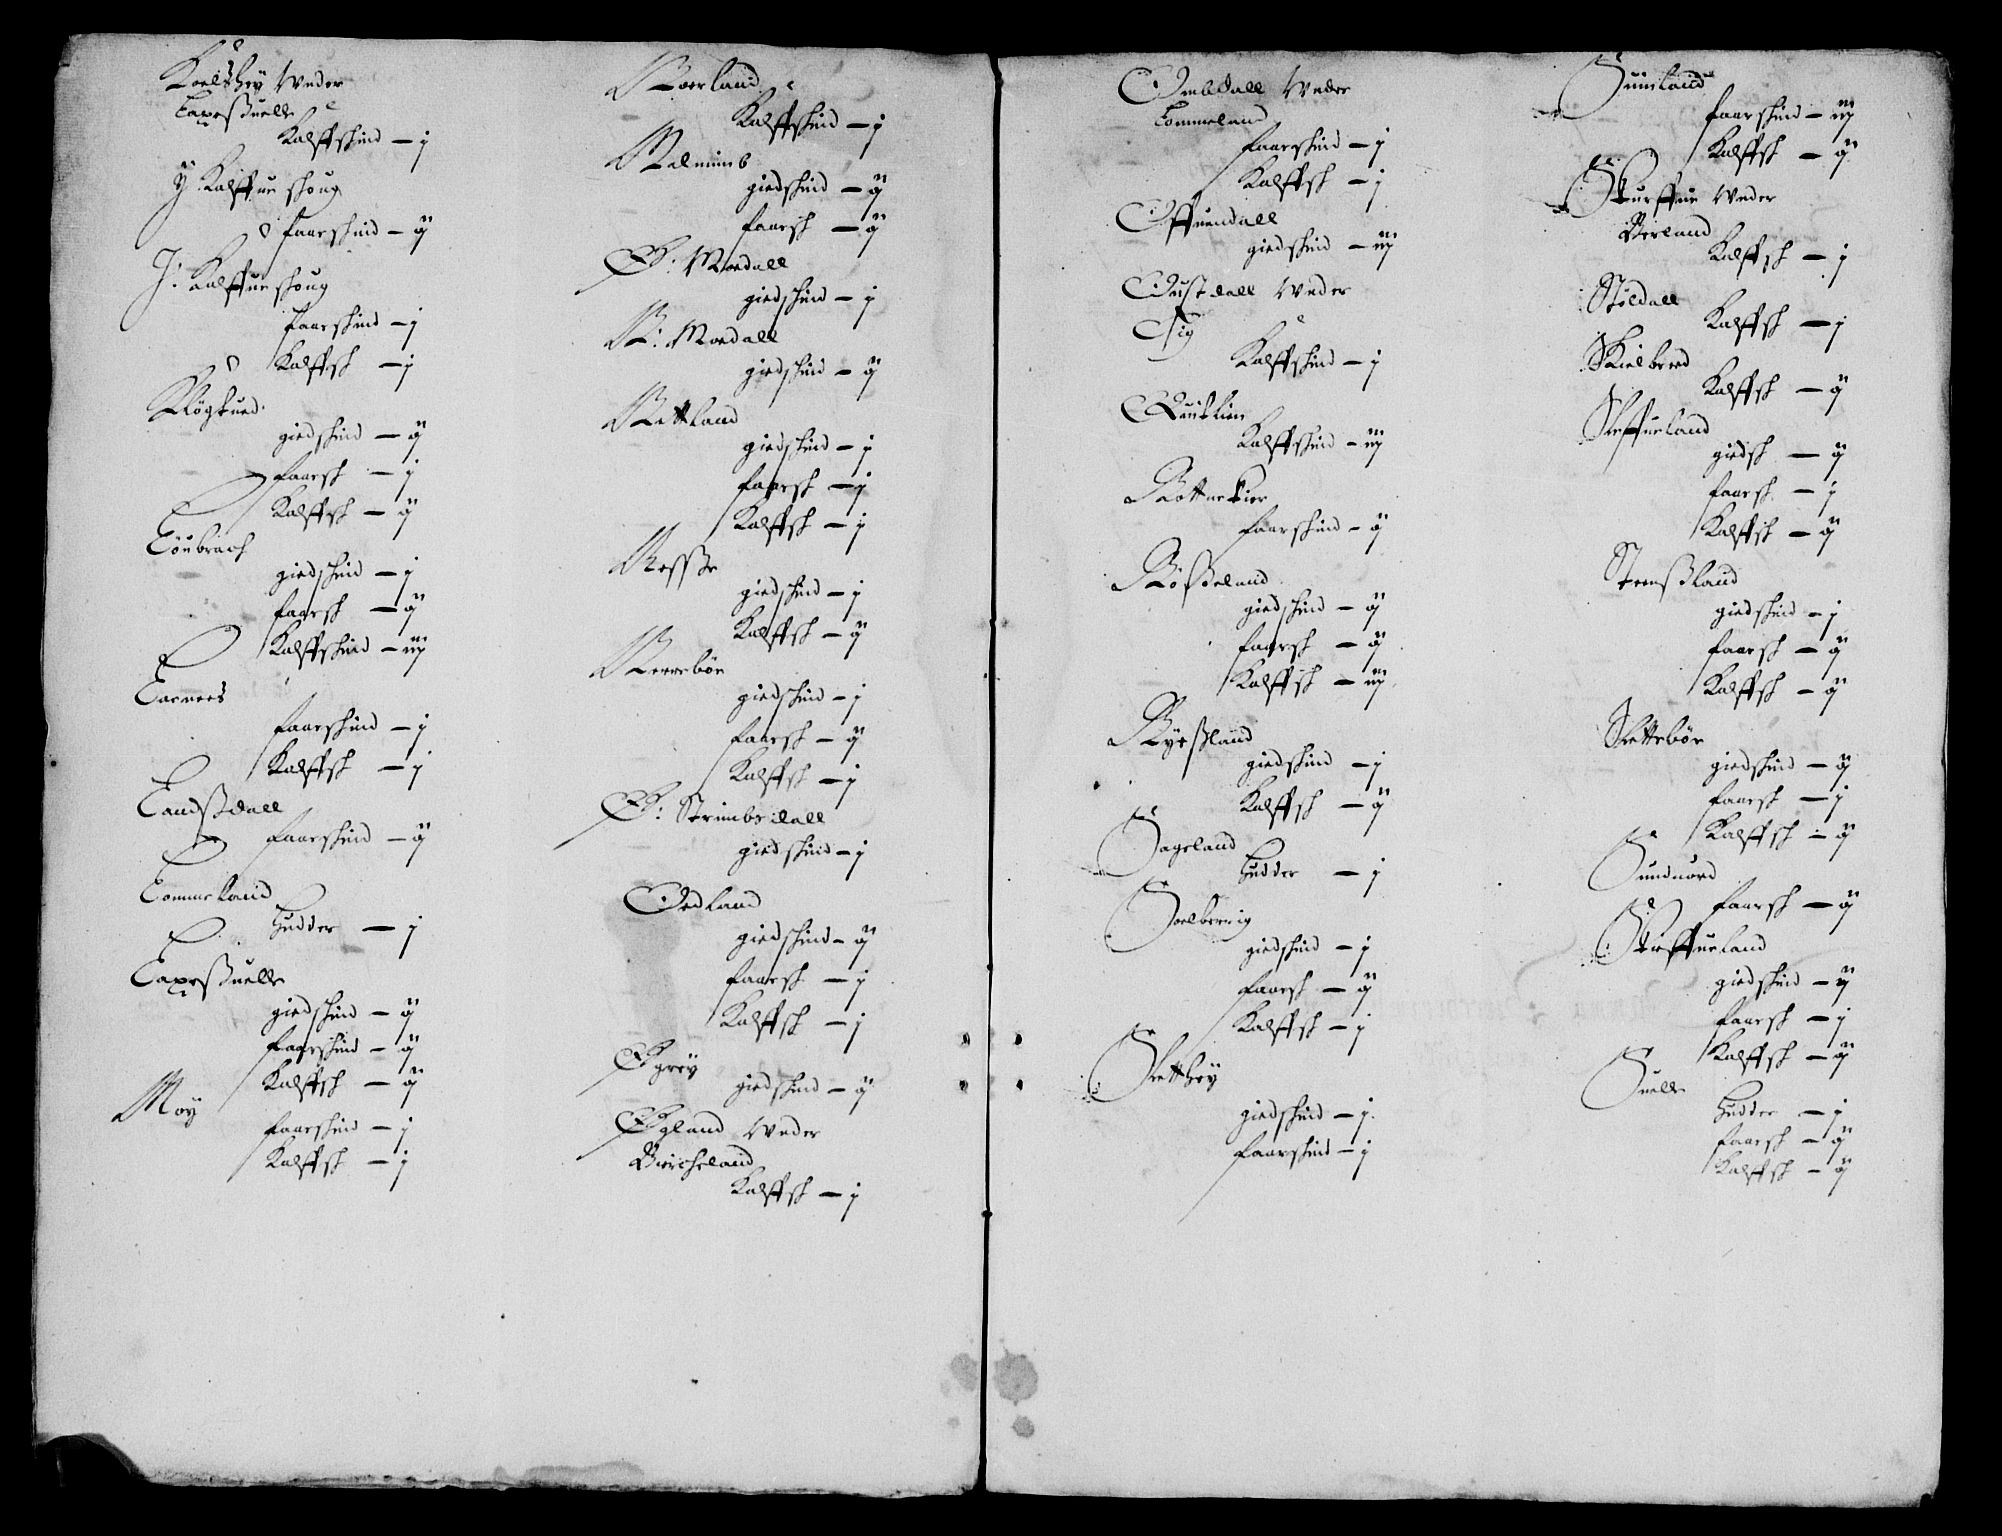 Roelshey Vnder
Laxesuelle
Kalffschind – j
Y: Kalffue skoug
faarschind – ij
J: Kalffue skoug
faarschind – j
Kalffsk – j
Kløgtued
giedschind – ij
faarsk – j
Kalffsk – ij
Løubrach
giedschind – j
faarsk – ij
Kalffschind – iij
Larnees
faarschind – j
Kalffsk – j
Landssdall
faarschind – ij
Lommeland
Hudder – j
Laxesuelle
giedschind – ij
faarschind – ij
Kalffsk – ij
Moy
faarschind – j
Kalffsk – j
Moerland
Kalffschind – j
Malmimb
giedschind – ij
faarsk – ij
Ø: Moedall
giedschind – j
N: Moedall
giedschind – ij
Nettland
giedschind – j
faarsk – j
Kalffsk – j
Nesse
giedschind – j
Kalffsk – ij
Neerebøe
giedschind – j
faarsk – ij
Kalffsk – j
Ø: Strimbsdall
giedschind – j
Oedland
giedschind – ij
faarsk – j
Kalffsk – j
Øgrey
giedschind – ij
Øgland Vnder
Bircheland
Kalffsk – j
Ombdall Vnder
Lommeland
faarschind – j
Kalffsk – j
Offuendall
giedschind – iij
Oustdall Vnder
Kalffschind – j
Quitlien
Kalffschind – iij
Rottnekier
faarschind – ij
Røsseland
giedschind – ij
faarsk – ij
Kalffsk – iij
Ryesland
giedschind – j
Kalffsk – ij
Sageland
Hudder – j
Soelberrig
giedschind – j
faarsk – ij
Kalffsk – j
Sletthey
giedschind – j
faarschind – j
Suinland
faarschind – iij
Kalffsk – ij
Skurffue Vnder
Birland
Kalffsk – j
Støldall
Kalffsk – j
Skielbred
Kalffsk – ij
Steffueland
giedsk – ij
faarsk – j
Kalffsk – ij
Steensland
giedschind – j
faarsk – ij
Kalffsk – ij
Slettebøe
giedschind – ij
faarsk – j
Kalffsk – ij
Sundnord
faarsk – ij
Skeffueland
giedschind – ij
faarsk – j
Kalffsk – ij
Suelle
Hudder – j
faarsk – ij
Kalffsk – ij